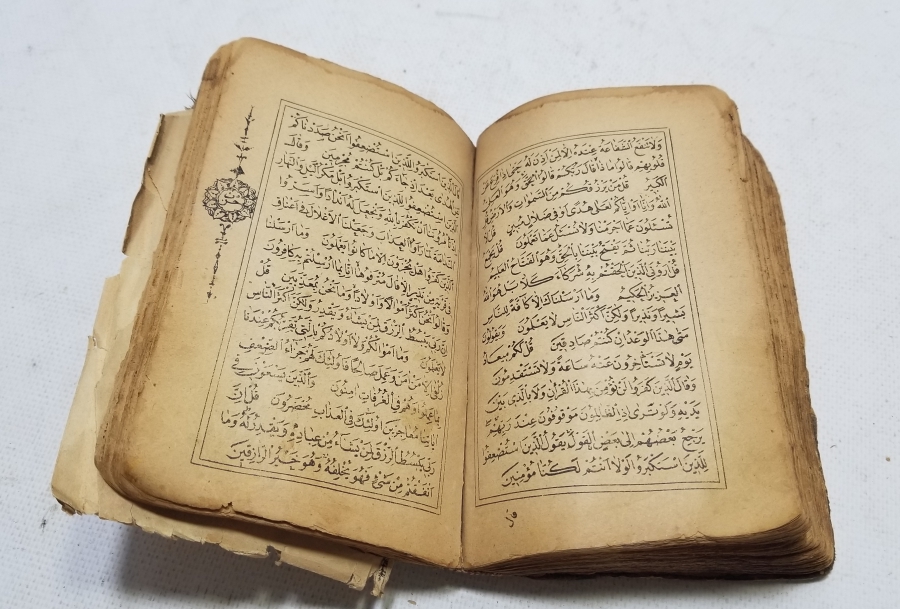 وَلَا تَنْفَعُ الشَّفَاعَةُ عِنْدَهُ إِلَّا لِمَنْ أَذِنَ لَهُ حَتَّى إِذَا فُزِّعَ عَنْ
قُلُوبِهِمْ قَالُوا مَاذَا قَالَ رَبُّكُمْ قَالُوا الْحَقَّ وَهُوَ الْعَلِيُّ
الْكَبِيرُ قُلْ مَنْ يَرْزُقُكُمْ مِنَ السَّمَوَاتِ وَالْأَرْضِ قُلِ
اللَّهُ وَإِنَّا أَوْ إِيَّاكُمْ لَعَلَى هُدًى أَوْ فِي ضَلَالٍ مُبِينٍ قُلْ لَا
تُسْئَلُونَ عَمَّا أَجْرَمْنَا وَلَا نُسْئَلُ عَمَّا تَعْمَلُونَ قُلْ يَجْمَعُ
بَيْنَنَا رَبُّنَا ثُمَّ يَفْتَحُ بَيْنَنَا بِالْحَقِّ وَهُوَ الْفَتَّاحُ الْعَلِيمُ
قُلْ أَرُونِيَ الَّذِينَ أَلْحَقْتُمْ بِهِ شُرَكَاءَ كَلَّا بَلْ هُوَ اللَّهُ
الْعَزِيزُ الْحَكِيمُ وَمَا أَرْسَلْنَاكَ إِلَّا كَافَّةً لِلنَّاسِ
بَشِيرًا وَنَذِيرًا وَلَكِنَّ أَكْثَرَ النَّاسِ لَا يَعْلَمُونَ وَيَقُولُونَ
مَتَى هَذَا الْوَعْدُ إِنْ كُنْتُمْ صَادِقِينَ قُلْ لَكُمْ مِيعَادُ
يَوْمٍ لَا تَسْتَأْخِرُونَ عَنْهُ سَاعَةً وَلَا تَسْتَقْدِمُونَ
وَقَالَ الَّذِينَ كَفَرُوا لَنْ نُؤْمِنَ بِهَذَا الْقُرْآنِ وَلَا بِالَّذِي بَيْنَ
يَدَيْهِ وَلَوْ تَرَى إِذِ الظَّالِمُونَ مَوْقُوفُونَ عِنْدَ رَبِّهِمْ
يَرْجِعُ بَعْضُهُمْ إِلَى بَعْضٍ الْقَوْلَ يَقُولُ الَّذِينَ اسْتُضْعِفُوا
لِلَّذِينَ اسْتَكْبَرُوا لَوْلَا أَنْتُمْ لَكُنَّا مُؤْمِنِينَ
قال
قَالَ الَّذِينَ اسْتَكْبَرُوا لِلَّذِينَ اسْتُضْعِفُوا أَنَحْنُ صَدَدْنَاكُمْ
عَنِ الْهُدَى بَعْدَ إِذْ جَاءَكُمْ بَلْ كُنْتُمْ مُجْرِمِينَ وَقَالَ
الَّذِينَ اسْتُضْعِفُوا لِلَّذِينَ اسْتَكْبَرُوا بَلْ مَكْرُ الَّيْلِ وَالنَّهَارِ
إِذْ تَأْمُرُونَنَا أَنْ نَكْفُرَ بِاللَّهِ وَنَجْعَلَ لَهُ أَنْدَادًا وَأَسَرُّوا
النَّدَامَةَ لَمَّا رَأَوُا الْعَذَابَ وَجَعَلْنَا الْأَغْلَالَ فِي أَعْنَاقِ
الَّذِينَ كَفَرُوا هَلْ يُجْزَوْنَ إِلَّا مَا كَانُوا يَعْمَلُونَ وَمَا أَرْسَلْنَا
فِي قَرْيَةٍ مِنْ نَذِيرٍ إِلَّا قَالَ مُتْرَفُوهَا إِنَّا بِمَا أُرْسِلْتُمْ بِهِ كَافِرُونَ
وَقَالُوا نَحْنُ أَكْثَرُ أَمْوَالًا وَأَوْلَادًا وَمَا نَحْنُ بِمُعَذَّبِينَ قُلْ
إِنَّ رَبِّي يَبْسُطُ الرِّزْقَ لِمَنْ يَشَاءُ وَيَقْدِرُ وَلَكِنَّ أَكْثَرَ النَّاسِ
لَا يَعْلَمُونَ وَمَا أَمْوَالُكُمْ وَلَا أَوْلَادُكُمْ بِالَّتِي تُقَرِّبُكُمْ عِنْدَنَا
زُلْفَى إِلَّا مَنْ آمَنَ وَعَمِلَ صَالِحًا فَأُولَئِكَ لَهُمْ جَزَاءُ الضِّعْفِ
بِمَا عَمِلُوا وَهُمْ فِي الْغُرُفَاتِ آمِنُونَ وَالَّذِينَ يَسْعَوْنَ فِي
آيَاتِنَا مُعَاجِزِينَ أُولَئِكَ فِي الْعَذَابِ مُحْضَرُونَ قُلْ إِنَّ
رَبِّي يَبْسُطُ الرِّزْقَ لِمَنْ يَشَاءُ مِنْ عِبَادِهِ وَيَقْدِرُ لَهُ وَمَا
أَنْفَقْتُمْ مِنْ شَيْءٍ فَهُوَ يُخْلِفُهُ وَهُوَ خَيْرُ الرَّازِقِينَ